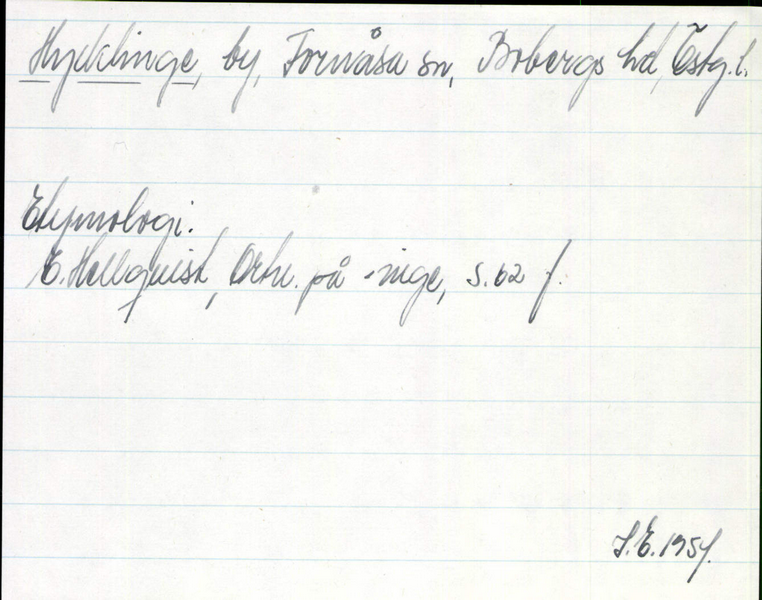 Hycklinge, by, Fornåsa sn, Bobergs hd, Östg.l.
Etymologi.
E. Hellquist, Ortn. på -inge, s. 62 f.
S.E. 1954.